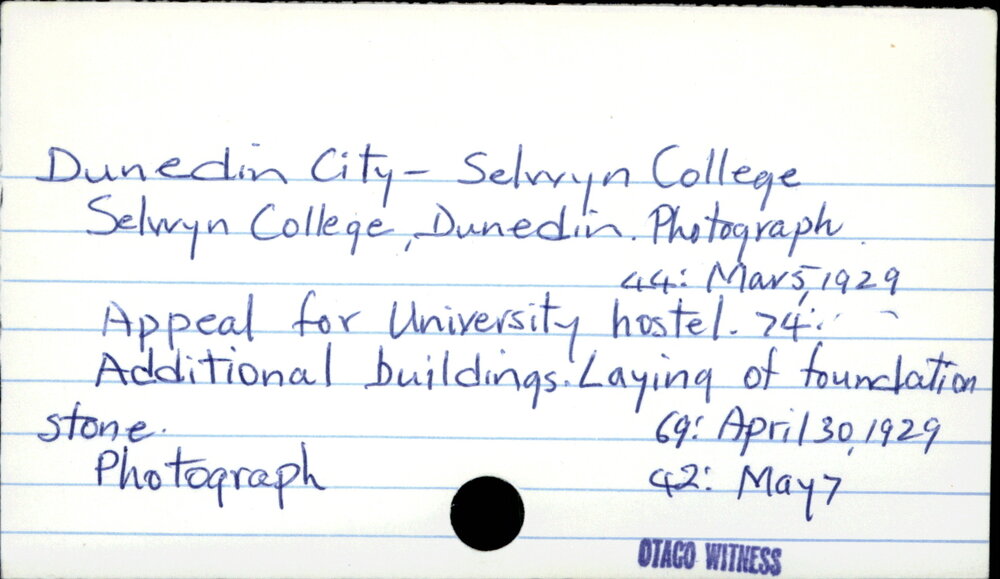 Dunedin City - Selwyn College
Selwyn College, Dunedin. Photograph.
44: Mar 5, 1929
Appeal for University hostel. 74: " "
Additional buildings. Laying of foundation
stone. 69: April 30, 1929
Photograph 42: May 7
OTAGO WITNESS